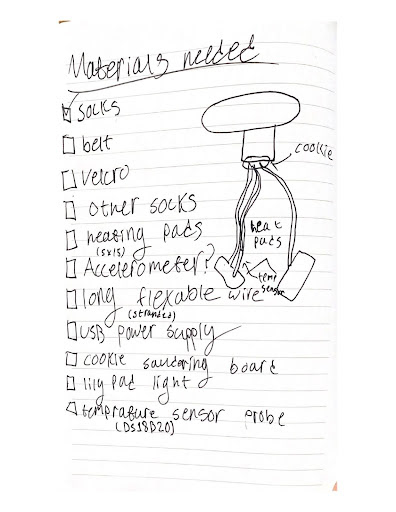 Materials needed
socks
belt
velcro
cookie
other socks
heating pads
(5x15)
heat
pads
Accelerometer?
temp
sensor
long flexable wire
(stranded)
USB power supply
cookie saudering board
lily pad light
temprature sensor probe
(DS18B20)